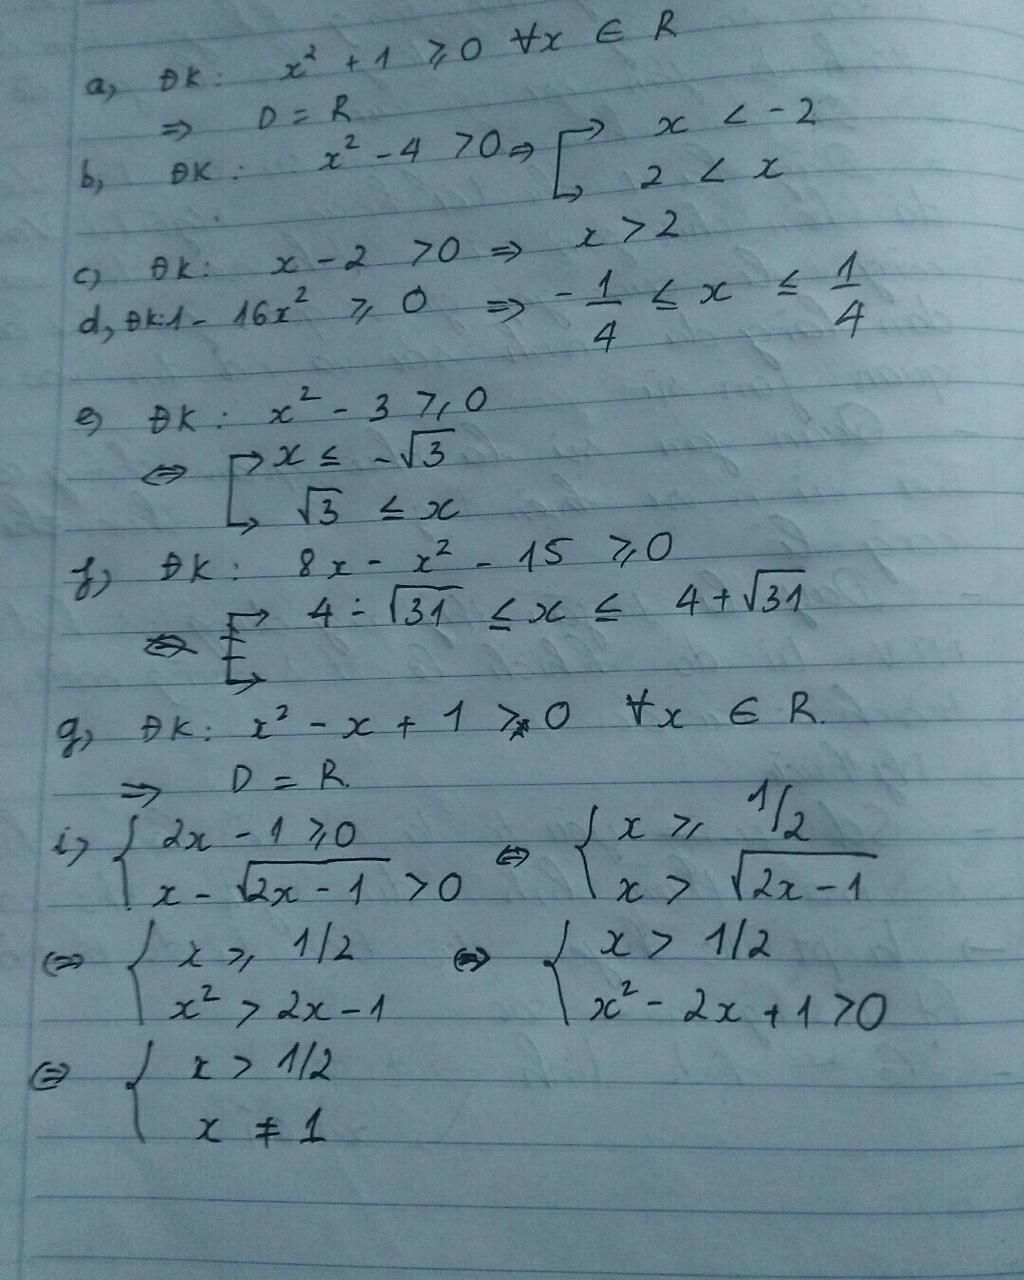 a, ĐK: x² + 1 ⩾ 0 ∀x ∈ R
⇒ D = R
b, ĐK: x² - 4 > 0 ⇒ [ x < -2
2 < x
c, ĐK: x - 2 > 0 ⇒ x > 2
d, ĐK: 1 - 16x² ⩾ 0 ⇒ -1/4 ≤ x ≤ 1/4
e, ĐK: x² - 3 ⩾ 0
⇔ [ x ≤ -√3
√3 ≤ x
f, ĐK: 8x - x² - 15 ⩾ 0
⇔ 4 - √31 ≤ x ≤ 4 + √31
g, ĐK: x² - x + 1 > 0 ∀x ∈ R.
⇒ D = R
i, { 2x - 1 ⩾ 0 ⇔ { x ⩾ 1/2
x - √(2x - 1) > 0 x > √(2x - 1)
⇔ { x ⩾ 1/2 ⇔ { x > 1/2
x² > 2x - 1 x² - 2x + 1 > 0
⇔ { x > 1/2
x ≠ 1